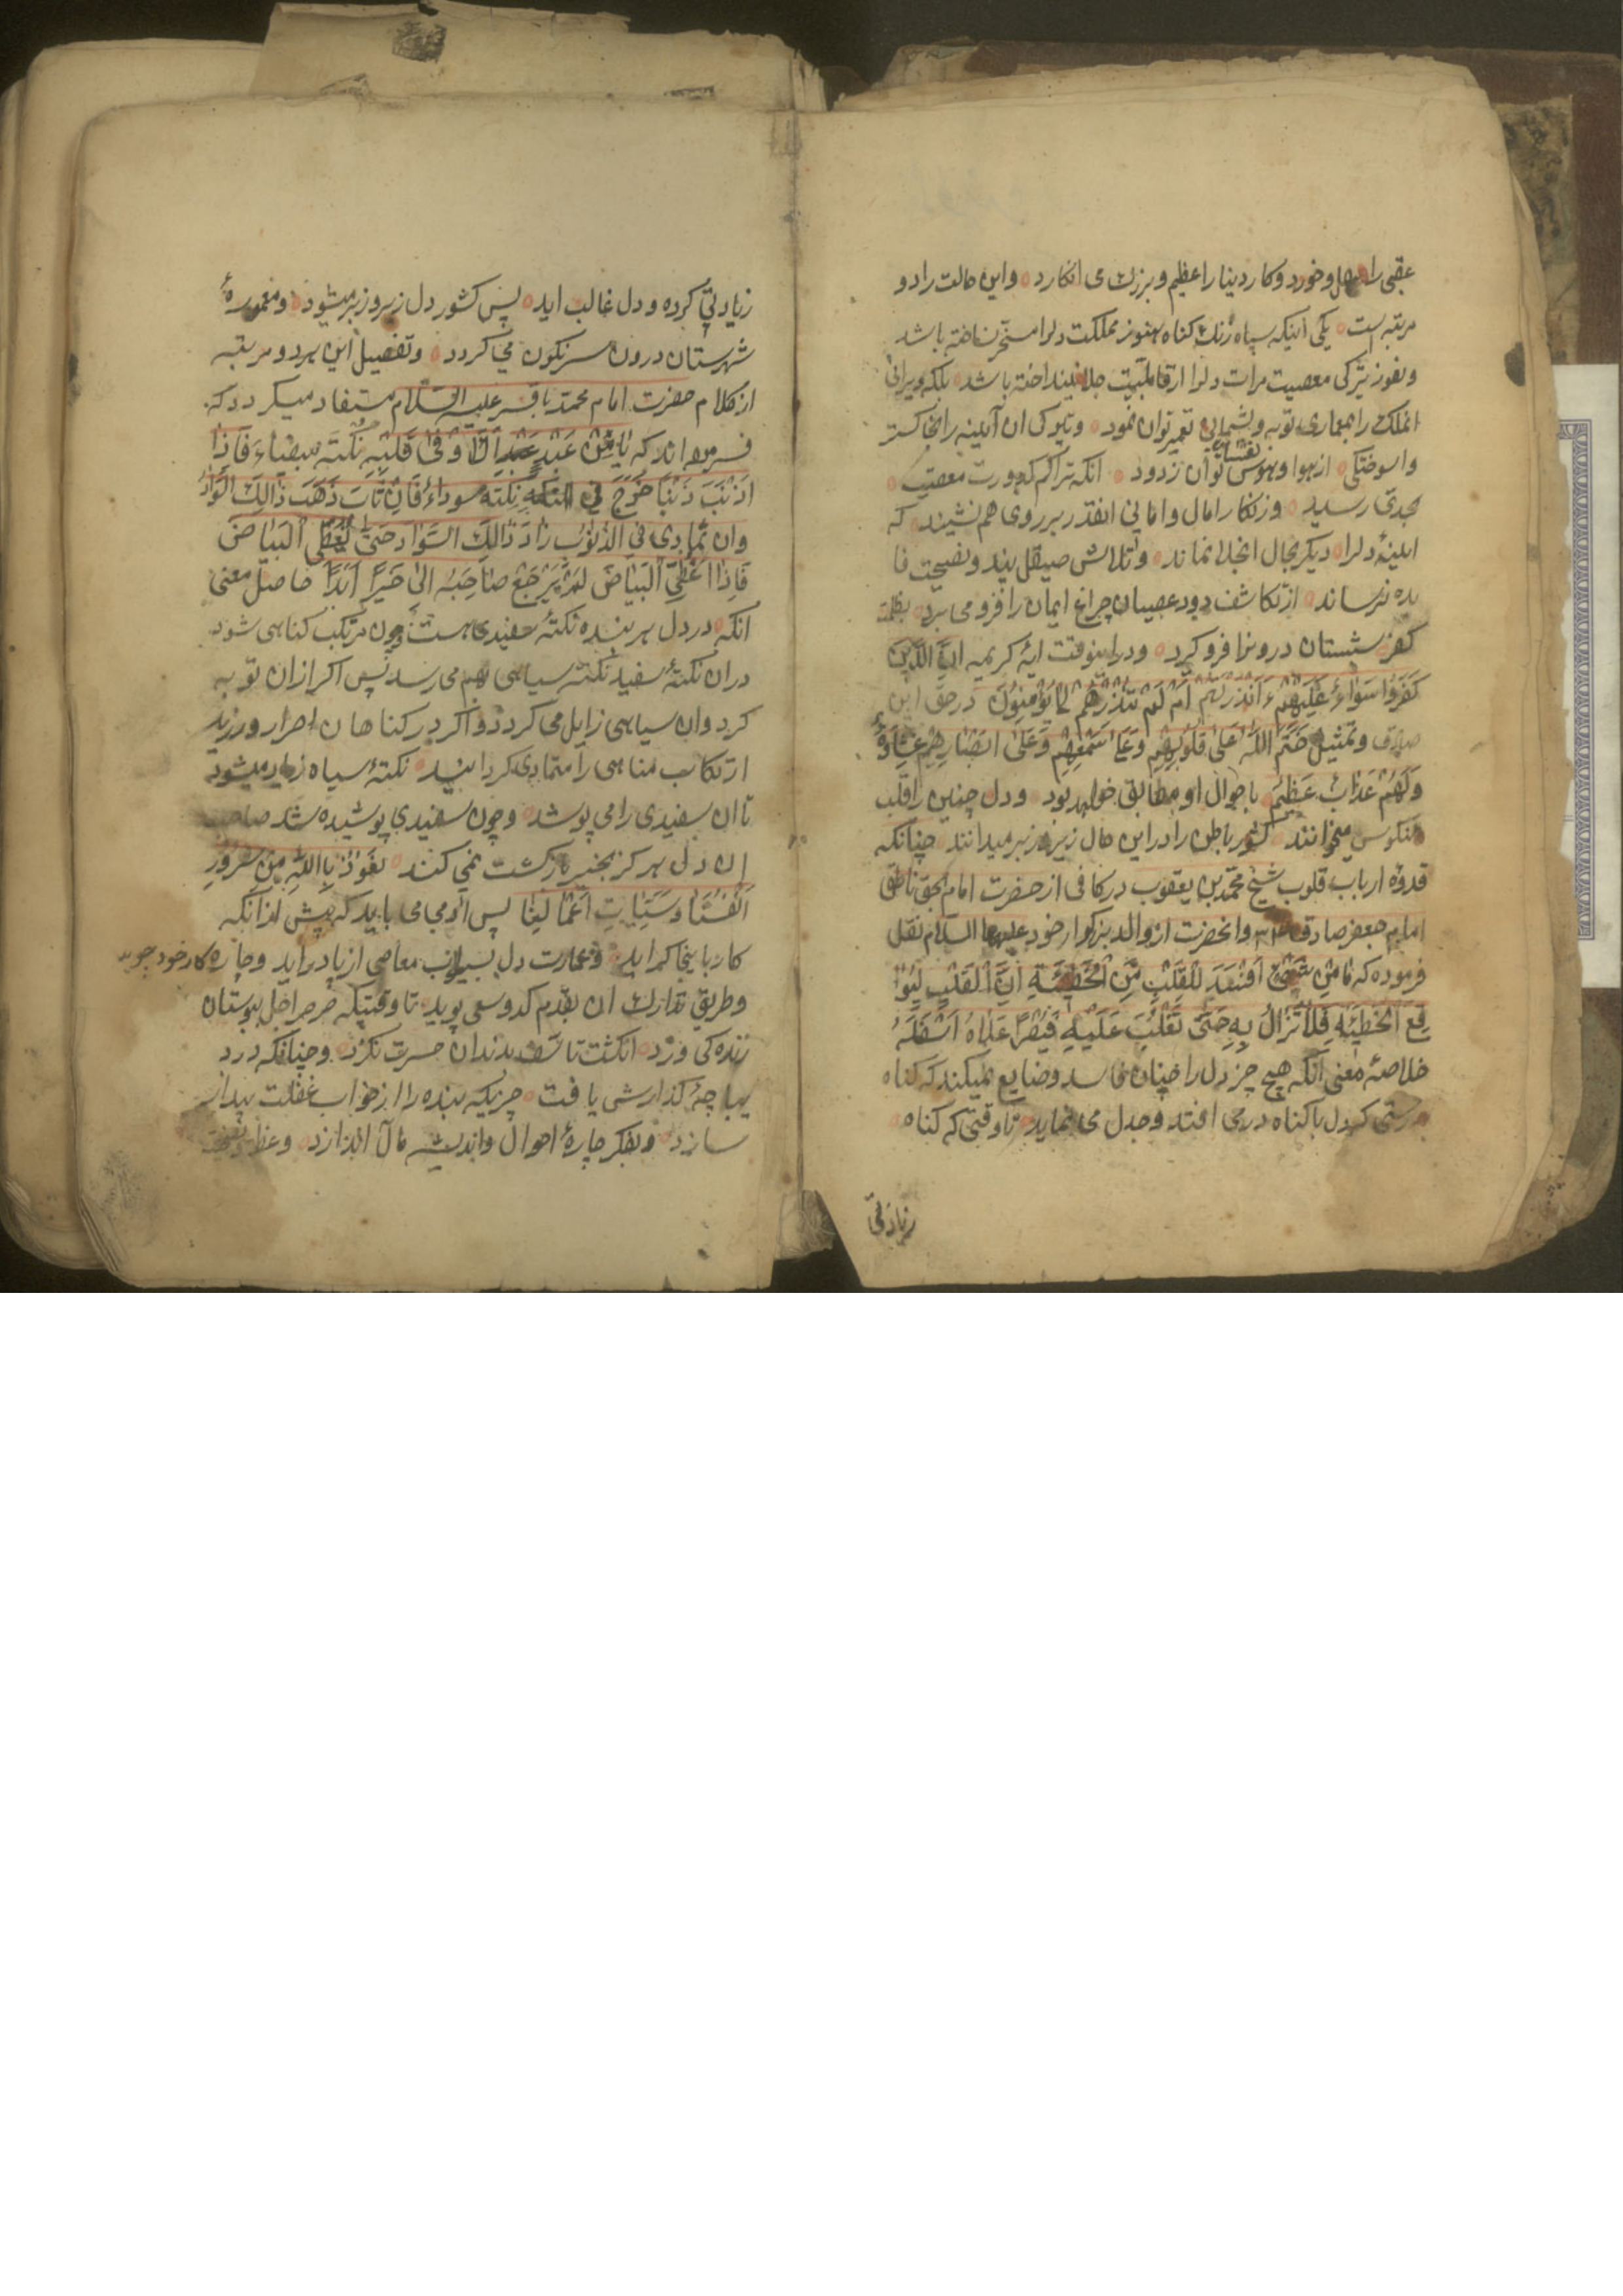 عقبی را سهل و خورد و کار دینا را عظیم و بزرك می انکارد و این حالت را دو
مرتبه است یکی اینکه سپاه زنك کناه هنوز مملکت دلرا مسخر نساخته باشد
و نفوز تیرکی معصیت مرات دلرا از قابلیت جلا نینداخته باشد بلکه ویرانی
انملك را بمعماری توبه و پشیمانی تعمیر توان نمود و تیرکی ان آیینه را بخاکستر
واسوختکی از هوا و هوس نفسانی توان زدود انکه تراکم کدورت معصیت
بحدی رسید و زنکار امال و امانی انقدر بر روی هم نشیند که
ایینهٔ دلرا دیکر مجال انجلا نماند و تلاش صیقل پند و نصیحت فا
یده نرساند از تکاشف دود عصیان چراغ ایمان را فرو می برد بظلمة
کفر شبستان درونرا فرو کیرد و دراینوقت ایهٔ کریمه اِنَّ الَّذینَ
کَفَرُوا سَوَاءٌ عَلَیْهِمْ ءَاَنْذَرْتَهُمْ اَمْ لَمْ تُنْذِرْهُمْ لَا یُؤْمِنُونَ در حق این
صادق و تمثیل خَتَمَ اللّٰهُ عَلیٰ قُلُوبِهِمْ وَعَلیٰ سَمْعِهِمْ وَعَلیٰ اَبْصَارِهِمْ غِشَاوَةٌ
وَلَهُمْ عَذَابٌ عَظِیمٌ باحوال او مطابق خواهد بود و دل چنین را قلب
منکوس میخوانند کشور باطن را در این حال زیر و زبر میدانند چنانکه
قدوهٔ ارباب قلوب شیخ محمّد بن یعقوب در کافی از حضرت امام بحق ناطق
امام جعفر صادق و انحضرت از والد بزرکوار خود علیهما السلام نقل
فرموده که مَا مِنْ شَیْیءٍ اَفْسَدَ لِلْقَلْبِ مِنَ الْخَطِیْئَةِ اِنَّ الْقَلْبَ لَیُوَا
قِعَ الْخَطِیئَةِ فَلَا تَزَالُ بِهِ حَتّیٰ تَغْلِبَ عَلَیْهِ فَیُصَیِّرَ اَعْلَاهُ اَسْفَلَهُ
خلاصهٔ معنی انکه هیچ چیز دل را چنان فاسد و ضایع نمیکند که کناه
بدرستی که دل با کناه در می افتد و جدل می نماید تا وقتی که کناه
زیادتی
زیادتی کرده و دل غالب اید پس کشور دل زیر و زبر میشود و معمورهٔ
شهرستان درون سرنکون می کردد و تفصیل این هر دو مرتبه
از کلام حضرت امام محمّد باقر علیه السّلام مستفاد میکردد که
فرموده اند که مَا مِنْ عَبْدٍ اِلَّا وَ فِی قَلْبِهِ نُکْتَةٌ بَیْضَاءُ فَاِذَا
اَذْنَبَ ذَنْبًا خَرَجَ فِی النُکْتَةِ نُکْتَةٌ سوداءُ فَاِنْ تَابَ ذَهَبَ ذَالِكَ السَّوَادُ
وَان تَمَادیٰ فِی الذُّنُوبِ زَادَ ذَالِكَ السَّوَاد حَتّیٰ یُغَطِّیَ الْبَیَاضَ
فَاِذَا غُطِّیَ الْبَیَاضَ لَمْ یَرْجِعْ صَاحِبُهُ اِلیٰ خَیْرٍ اَبَدًا حاصل معنی
انکه در دل هر بنده نکتهٔ سفیدی هست چون مرتکب کناهی شود
دران نکتهٔ سفید نکتهٔ سیاهی بهم می رسد پس اکر ازان توبه
کرد وان سیاهی زایل می کردد و اکر در کناهان اصرار ورزید
ارتکاب مناهی را متمادی کردانید نکتهٔ سیاه زیاد میشود
تا ان سفیدی را می پوشد و چون سفیدی پوشیده شد صاحب
ان دل هر کز بخیر بازکشت نمی کند نَعُوذُ بِاللّٰهِ مِنْ شُرُورِ
اَنْفُسِنَا وَ سَیِّئَاتِ اَعْمَالِنَا پس ادمی می باید که پیش از انکه
کار باینجا کراید و عمارت دل بسیلاب معاصی از پا دراید و چاره کار خود جوید
و طریق تدارك ان بقدم کد و سعی پوید تا وقتیکه صرصر اجل ببوستان
زنده کی وزد انکشت تاسّف بدندان حسرت نکزد و چنانکه در د
یباچهٔ کذارش یافت چیزیکه بنده را از خواب غفلت بیدار
سازد و بفکر چارهٔ احوال و اندیشه مآل اندازد وعظ و نصیحت